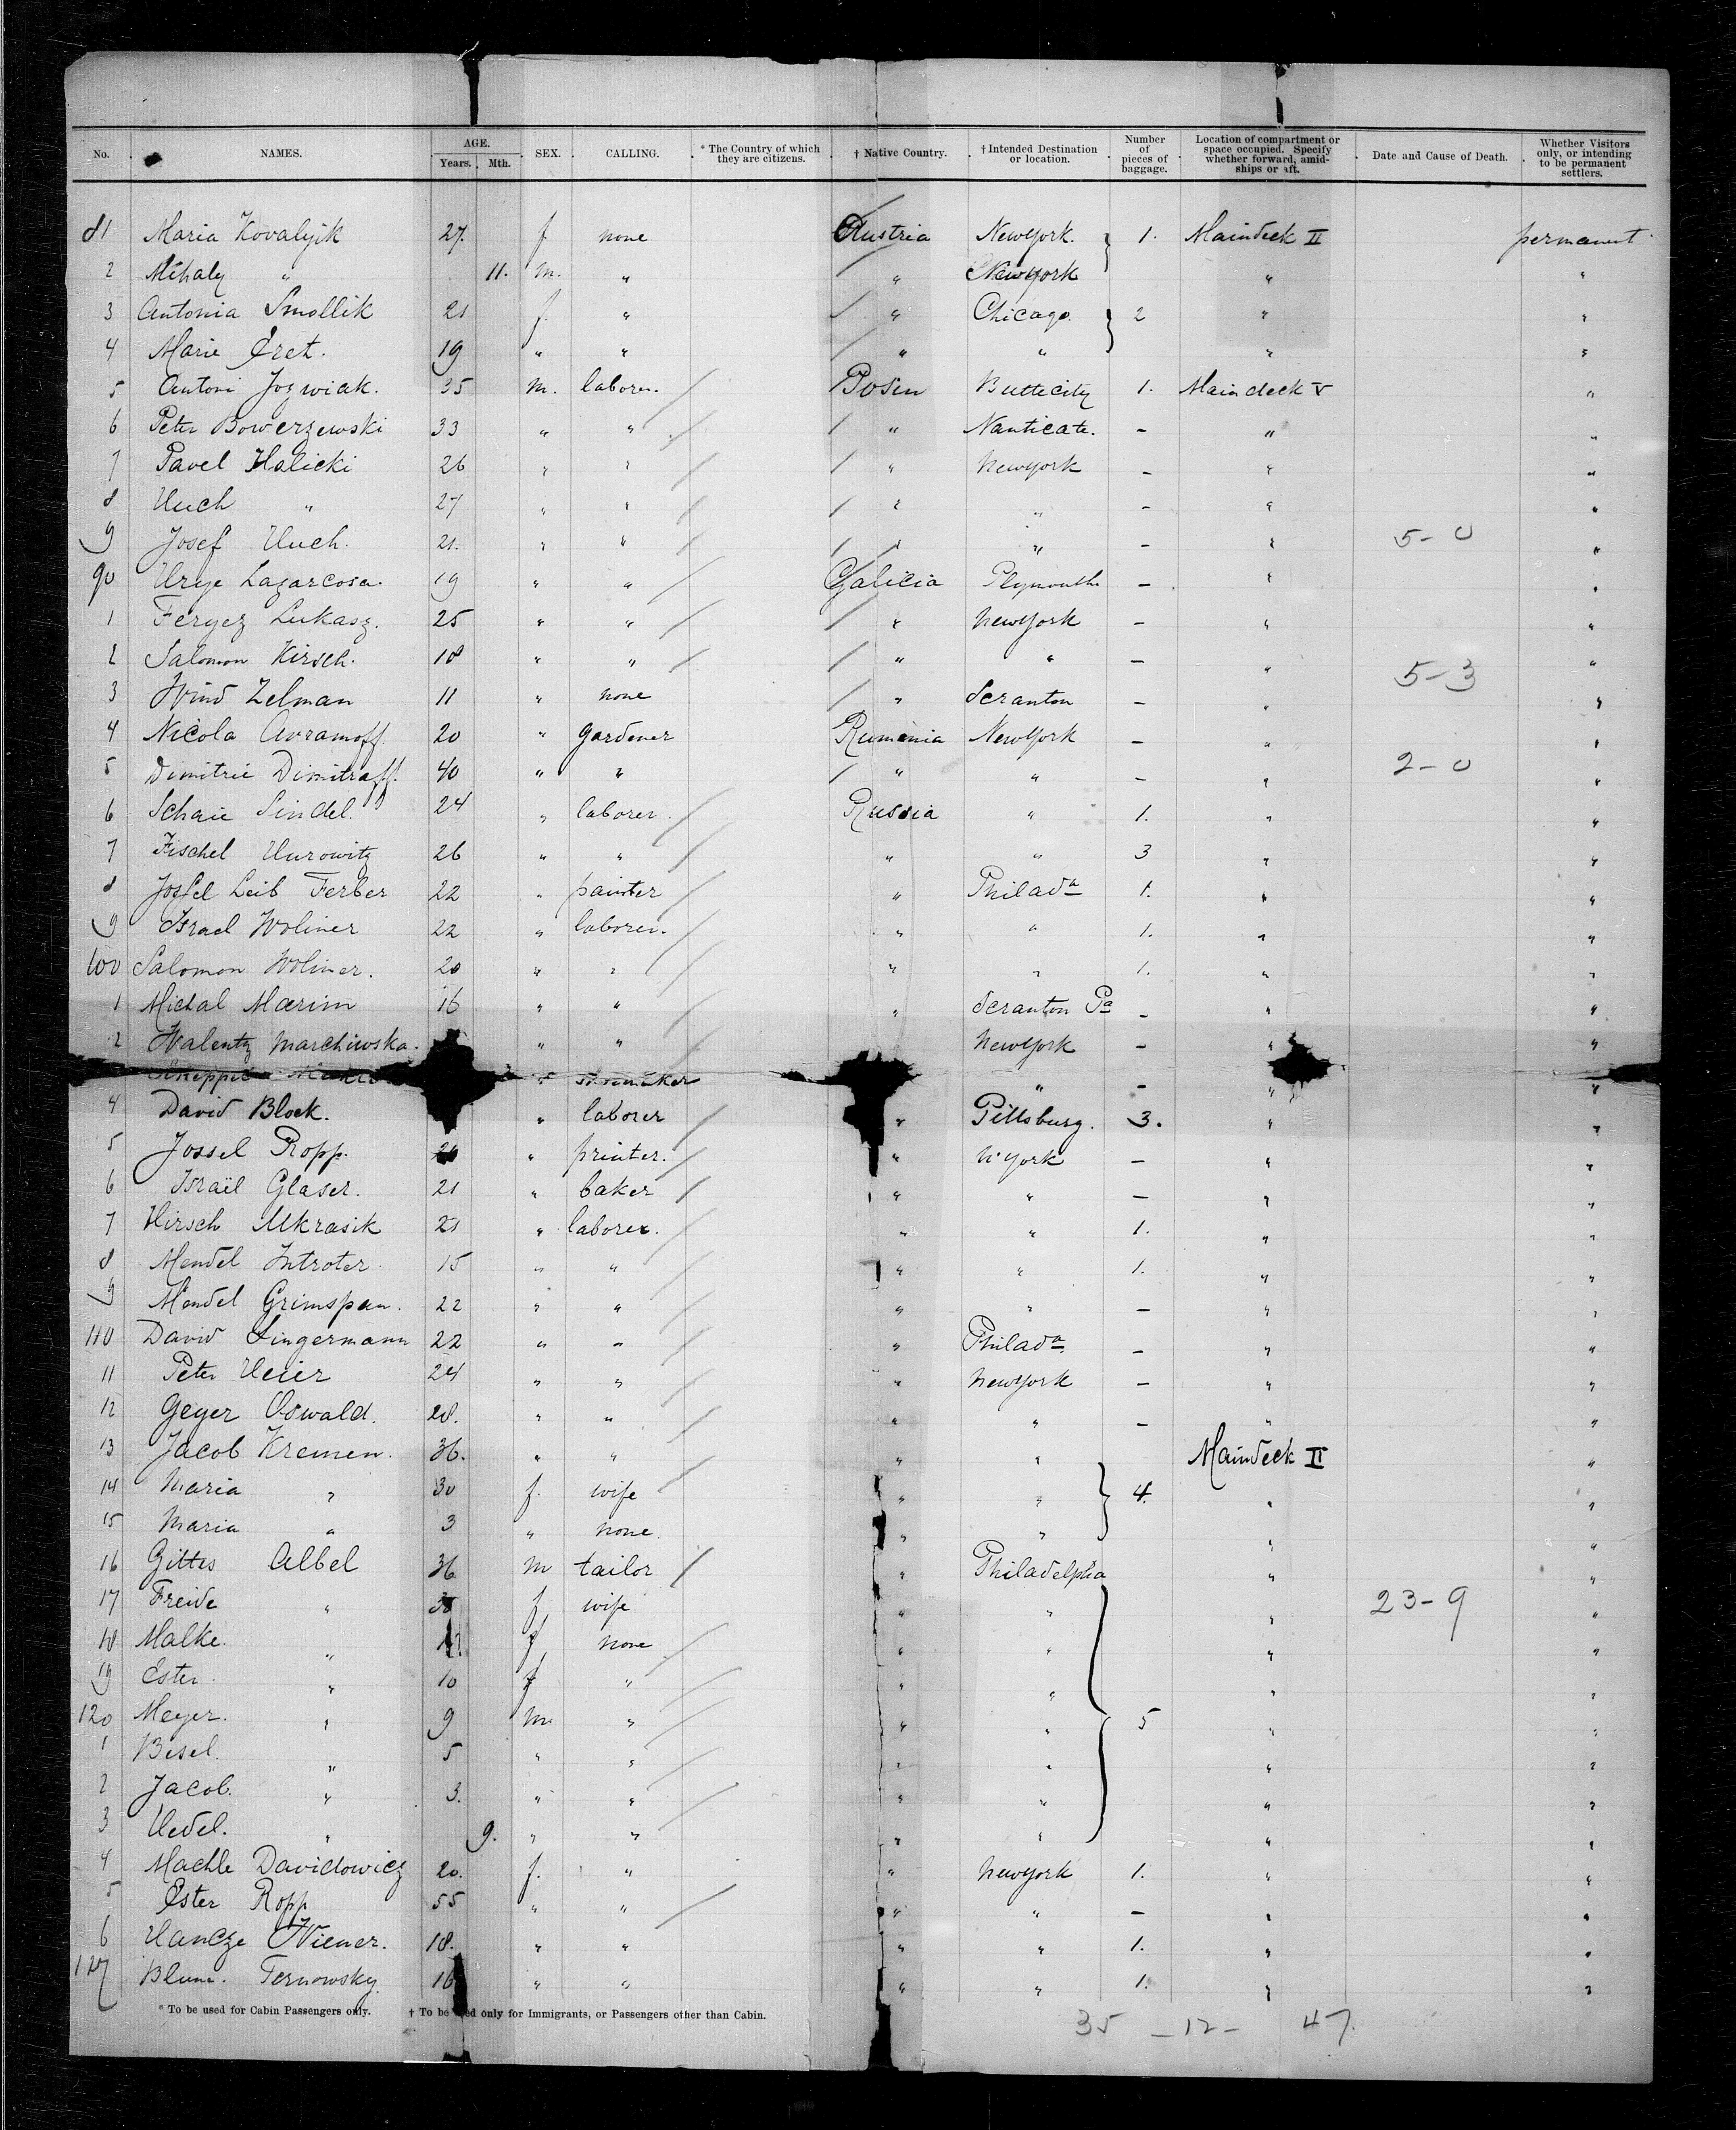 No. NAMES. AGE. Years. Mth. SEX. CALLING. * The Country of which they are citizens. † Native Country. † Intended Destination or location. Number of pieces of baggage. Location of compartment or space occupied. Specify whether forward, amidships or aft. Date and Cause of Death. Whether Visitors only, or intending to be permanent settlers.
81 Maria Kovalyik 27. f none Austria Newyork. 1. Maindeck II permanent
2 Mihaly " 11. m. " " Newyork " "
3 Antonia Smollik 21 f. " " Chicago. 2 " "
4 Marie 19 " " " " " "
5 Antoni Jozwiak. 35 m. laborer. Posen Buttecity 1. Maindeck V "
6 Peter Bowerzewski 33 " " " Nanticate. - " "
7 Pavel Halicki 26 " " " Newyork - " "
8 Huch " 27 " " " " - " "
9 Josef Huch. 21. " " " " - " 5-0 "
90 Urye Lazarcosa. 19 " " Galicia Plymouth - " "
1 Feryez Lukasz. 25 " " " Newyork - " "
2 Salomon Hirsch. 18 " " " " - " "
5-3
3 Wind Zelman 11 " none " Scranton - " "
4 Nicola Avramoff. 20 " gardener Rumania Newyork - " "
5 Dimitrie Dimitraff. 40 " " " " - " 2-0 "
6 Schaie Sindel. 24 " laborer. Russia " 1. " "
7 Fischel Hurowitz 26 " " " " 3 " "
8 Jossel Leib Ferber 22 " painter " Philada 1. " "
9 Israel Woliner 22 " laborer. " " 1. " "
100 Salomon Woliner. 20 " " " " 1. " "
1 Michal Marim 16 " " " Scranton Pa - " "
2 Walenty Marchiwska. " " Newyork - " "
" shomaker " - " "
4 David Block. " laborer " Pittsburg. 3. " "
5 Jossel Ropp. " printer. " N'York - " "
6 Israël Glaser. 21 " baker " " - " "
7 Hirsch Mkrasik 21 " laborer. " " 1. " "
8 Mendel Introter 15 " " " " 1. " "
9 Mendel Grimspan. 22 " " " " - " "
110 David Singermann 22 " " " Philada - " "
11 Peter Heier 24 " " " Newyork - " "
12 Geyer Oswald. 28. " " " " - " "
13 Jacob Kremen. 36. " " " " Maindeck II "
14 Maria " 30 f. wife " " 4. " "
15 Maria " 3 " none. " " " "
16 Gittes Albel 36 m tailor " Philadelphia " "
17 Freide " f. wife " " " 23-9 "
18 Malke. " f none " " " "
19 Ester. " 10 f " " " " "
120 Meyer. " 9 m. " " " 5 " "
1 Besel. " 5 " " " " " "
2 Jacob. " 3. " " " " " "
3 Hedel. " 9. " " " " " "
4 Machle Davidowicz 20. f. " " Newyork 1. " "
5 Ester Ropp 55 " " " " - " "
6 Hancze Wiener. 18. " " " " 1. " "
127 Blume. Ternowsky. 16 " " " " 1. " "
* To be used for Cabin Passengers only. † To be used only for Immigrants, or Passengers other than Cabin.
35 - 12 - 47